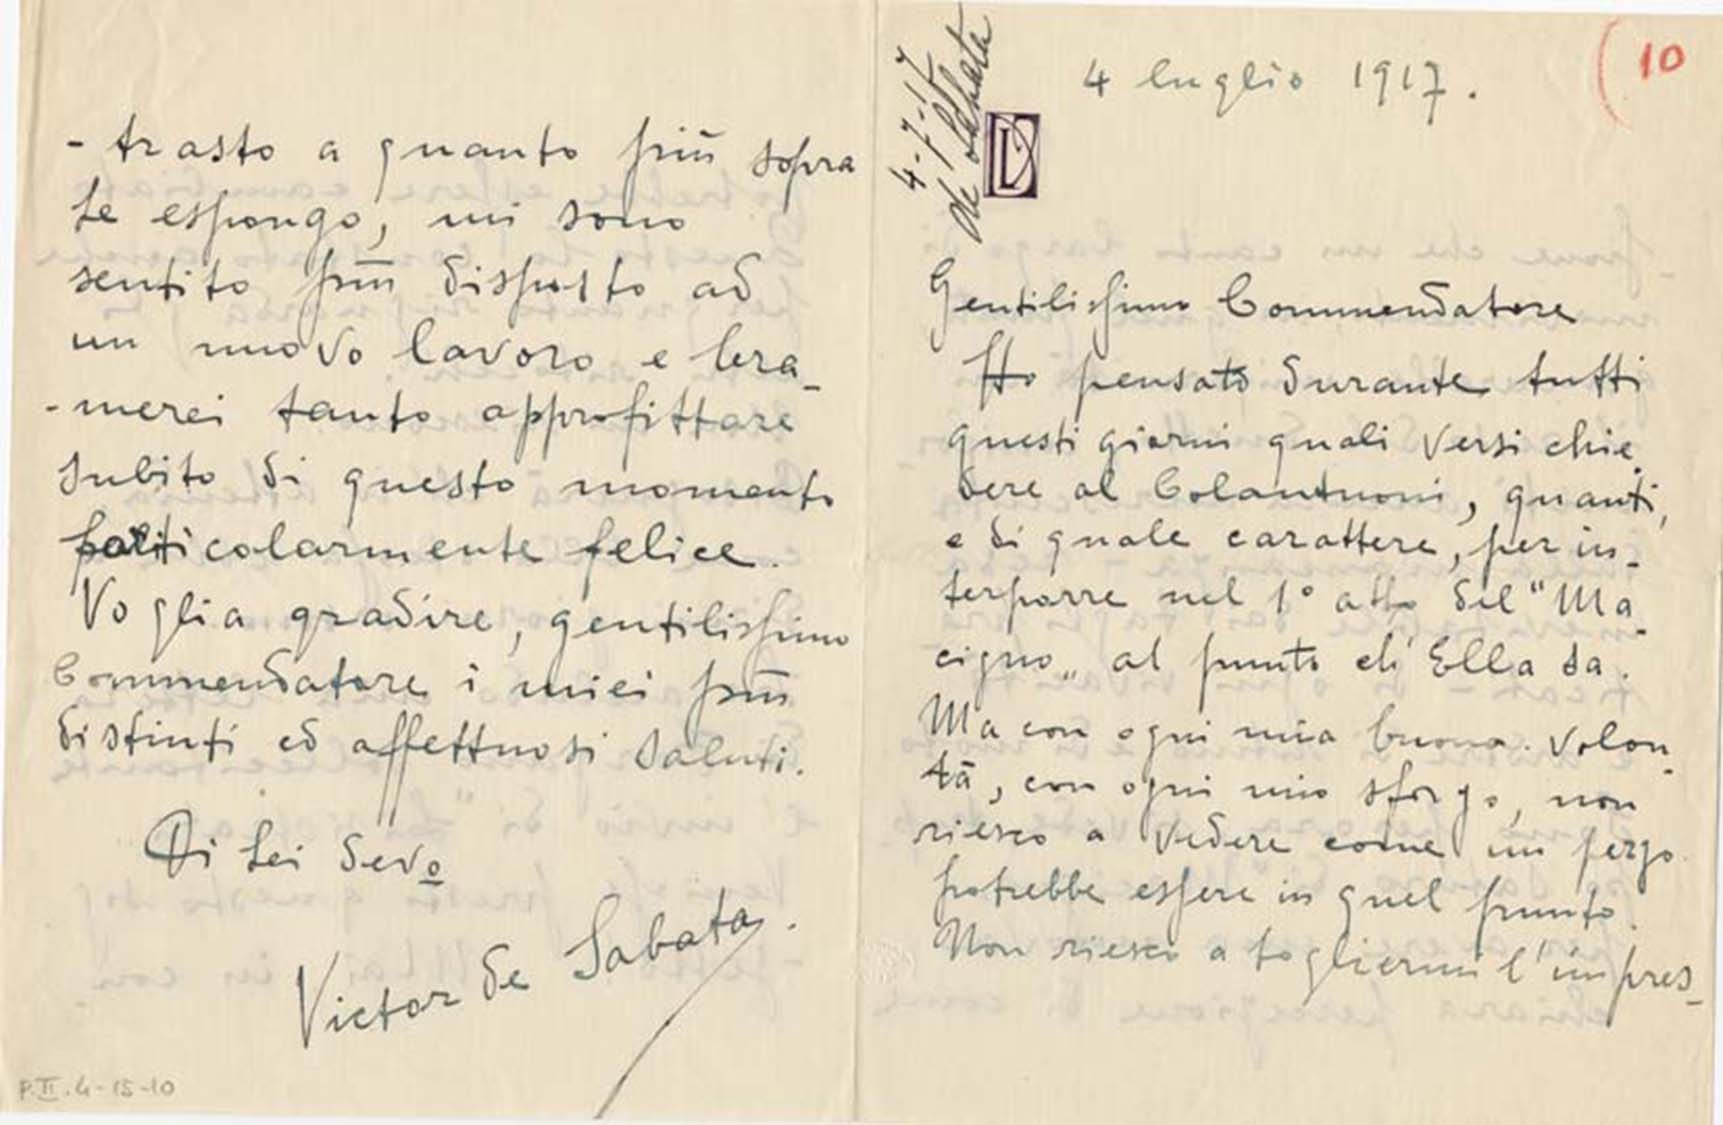 4 luglio 1917.
(10
4-7-17
de Sabata
Gentilissimo Commendatore
Ho pensato durante tutti
questi giorni quali versi chie
dere al Colantuoni, quanti,
e di quale carattere, per in-
terporre nel 1° atto del "Ma-
cigno„ al punto ch'Ella sa.
Ma con ogni mia buona volon-
tà, con ogni mio sforzo, non
riesco a vedere come un pezzo
potrebbe essere in quel punto.
Non riesco a togliermi l'impres-
- trasto a quanto più sopra
Le espongo, mi sono
sentito più disposto ad
un nuovo lavoro e bra-
- merei tanto approfittare
subito di questo momento
particolarmente felice.
Voglia gradire, gentilissimo
Commendatore i miei più
distinti ed affettuosi saluti.
Di Lei devo
Victor de Sabata.
P.II.4-15-10